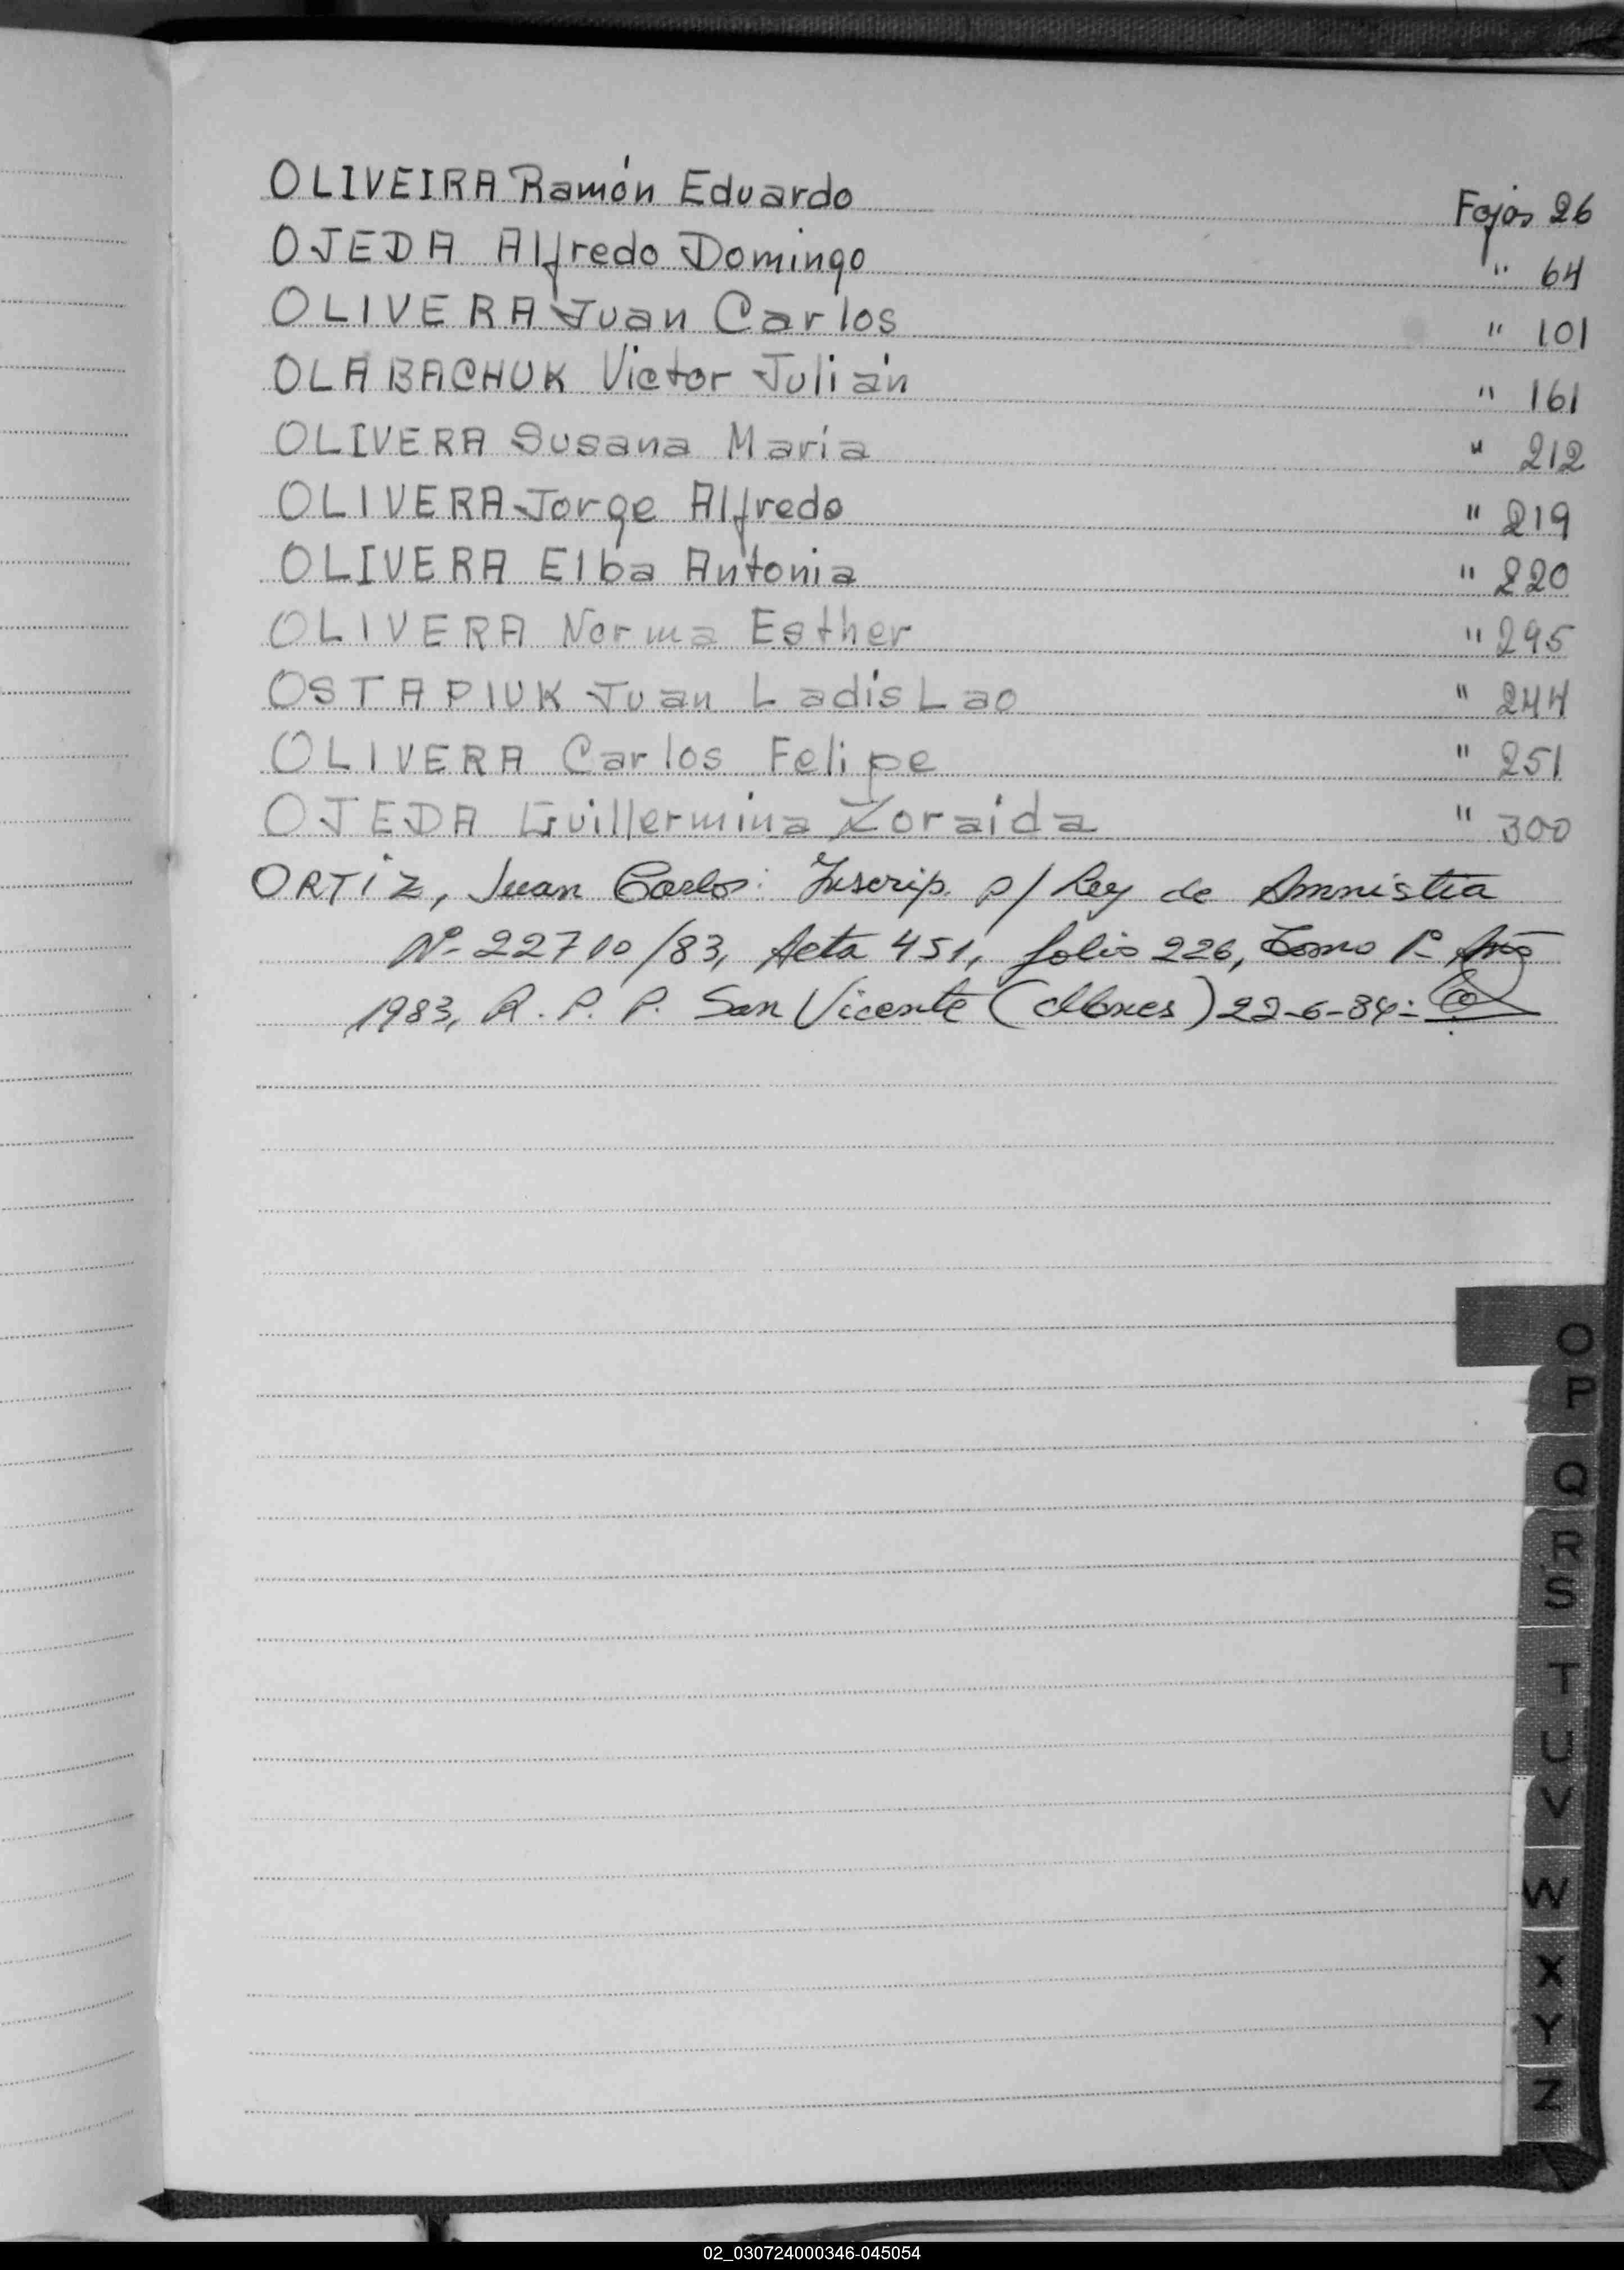 OLIVEIRA Ramón Eduardo Fojas 26
OJEDA Alfredo Domingo " 64
OLIVERA Juan Carlos " 101
OLABACHUK Victor Julián " 161
OLIVERA Susana Maria " 212
OLIVERA Jorge Alfredo " 219
OLIVERA Elba Antonia " 220
OLIVERA Norma Esther " 295
OSTAPIUK Juan Ladislao " 244
OLIVERA Carlos Felipe " 251
OJEDA Guillermina Zoraida " 300
ORTIZ, Juan Carlos: Inscrip. p/ Ley de Amnistia
Nº 22710/83, Acta 451, folio 226, Tomo 1º Año
1983, R. P. P. San Vicente (Mnes) 22-6-84.-
O
P
Q
R
S
T
U
V
W
X
Y
Z
02_030724000346-045054